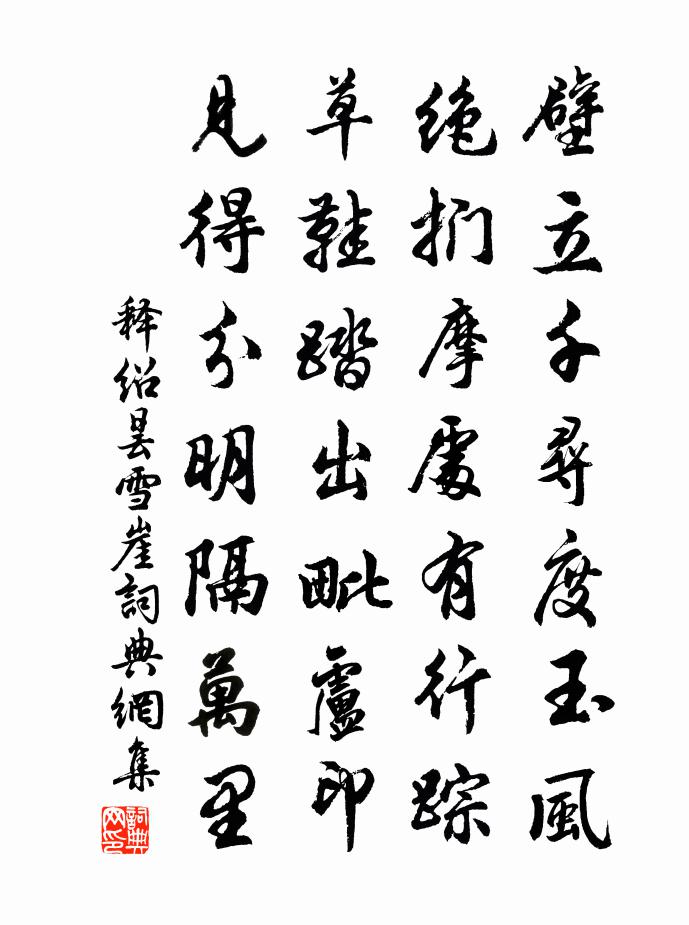 壁立千尋度玉風
絶捫摩處有行踪
草鞋踏出毗盧印
見得分明隔萬里
释紹曇雪崖詞典網集
詞典网印